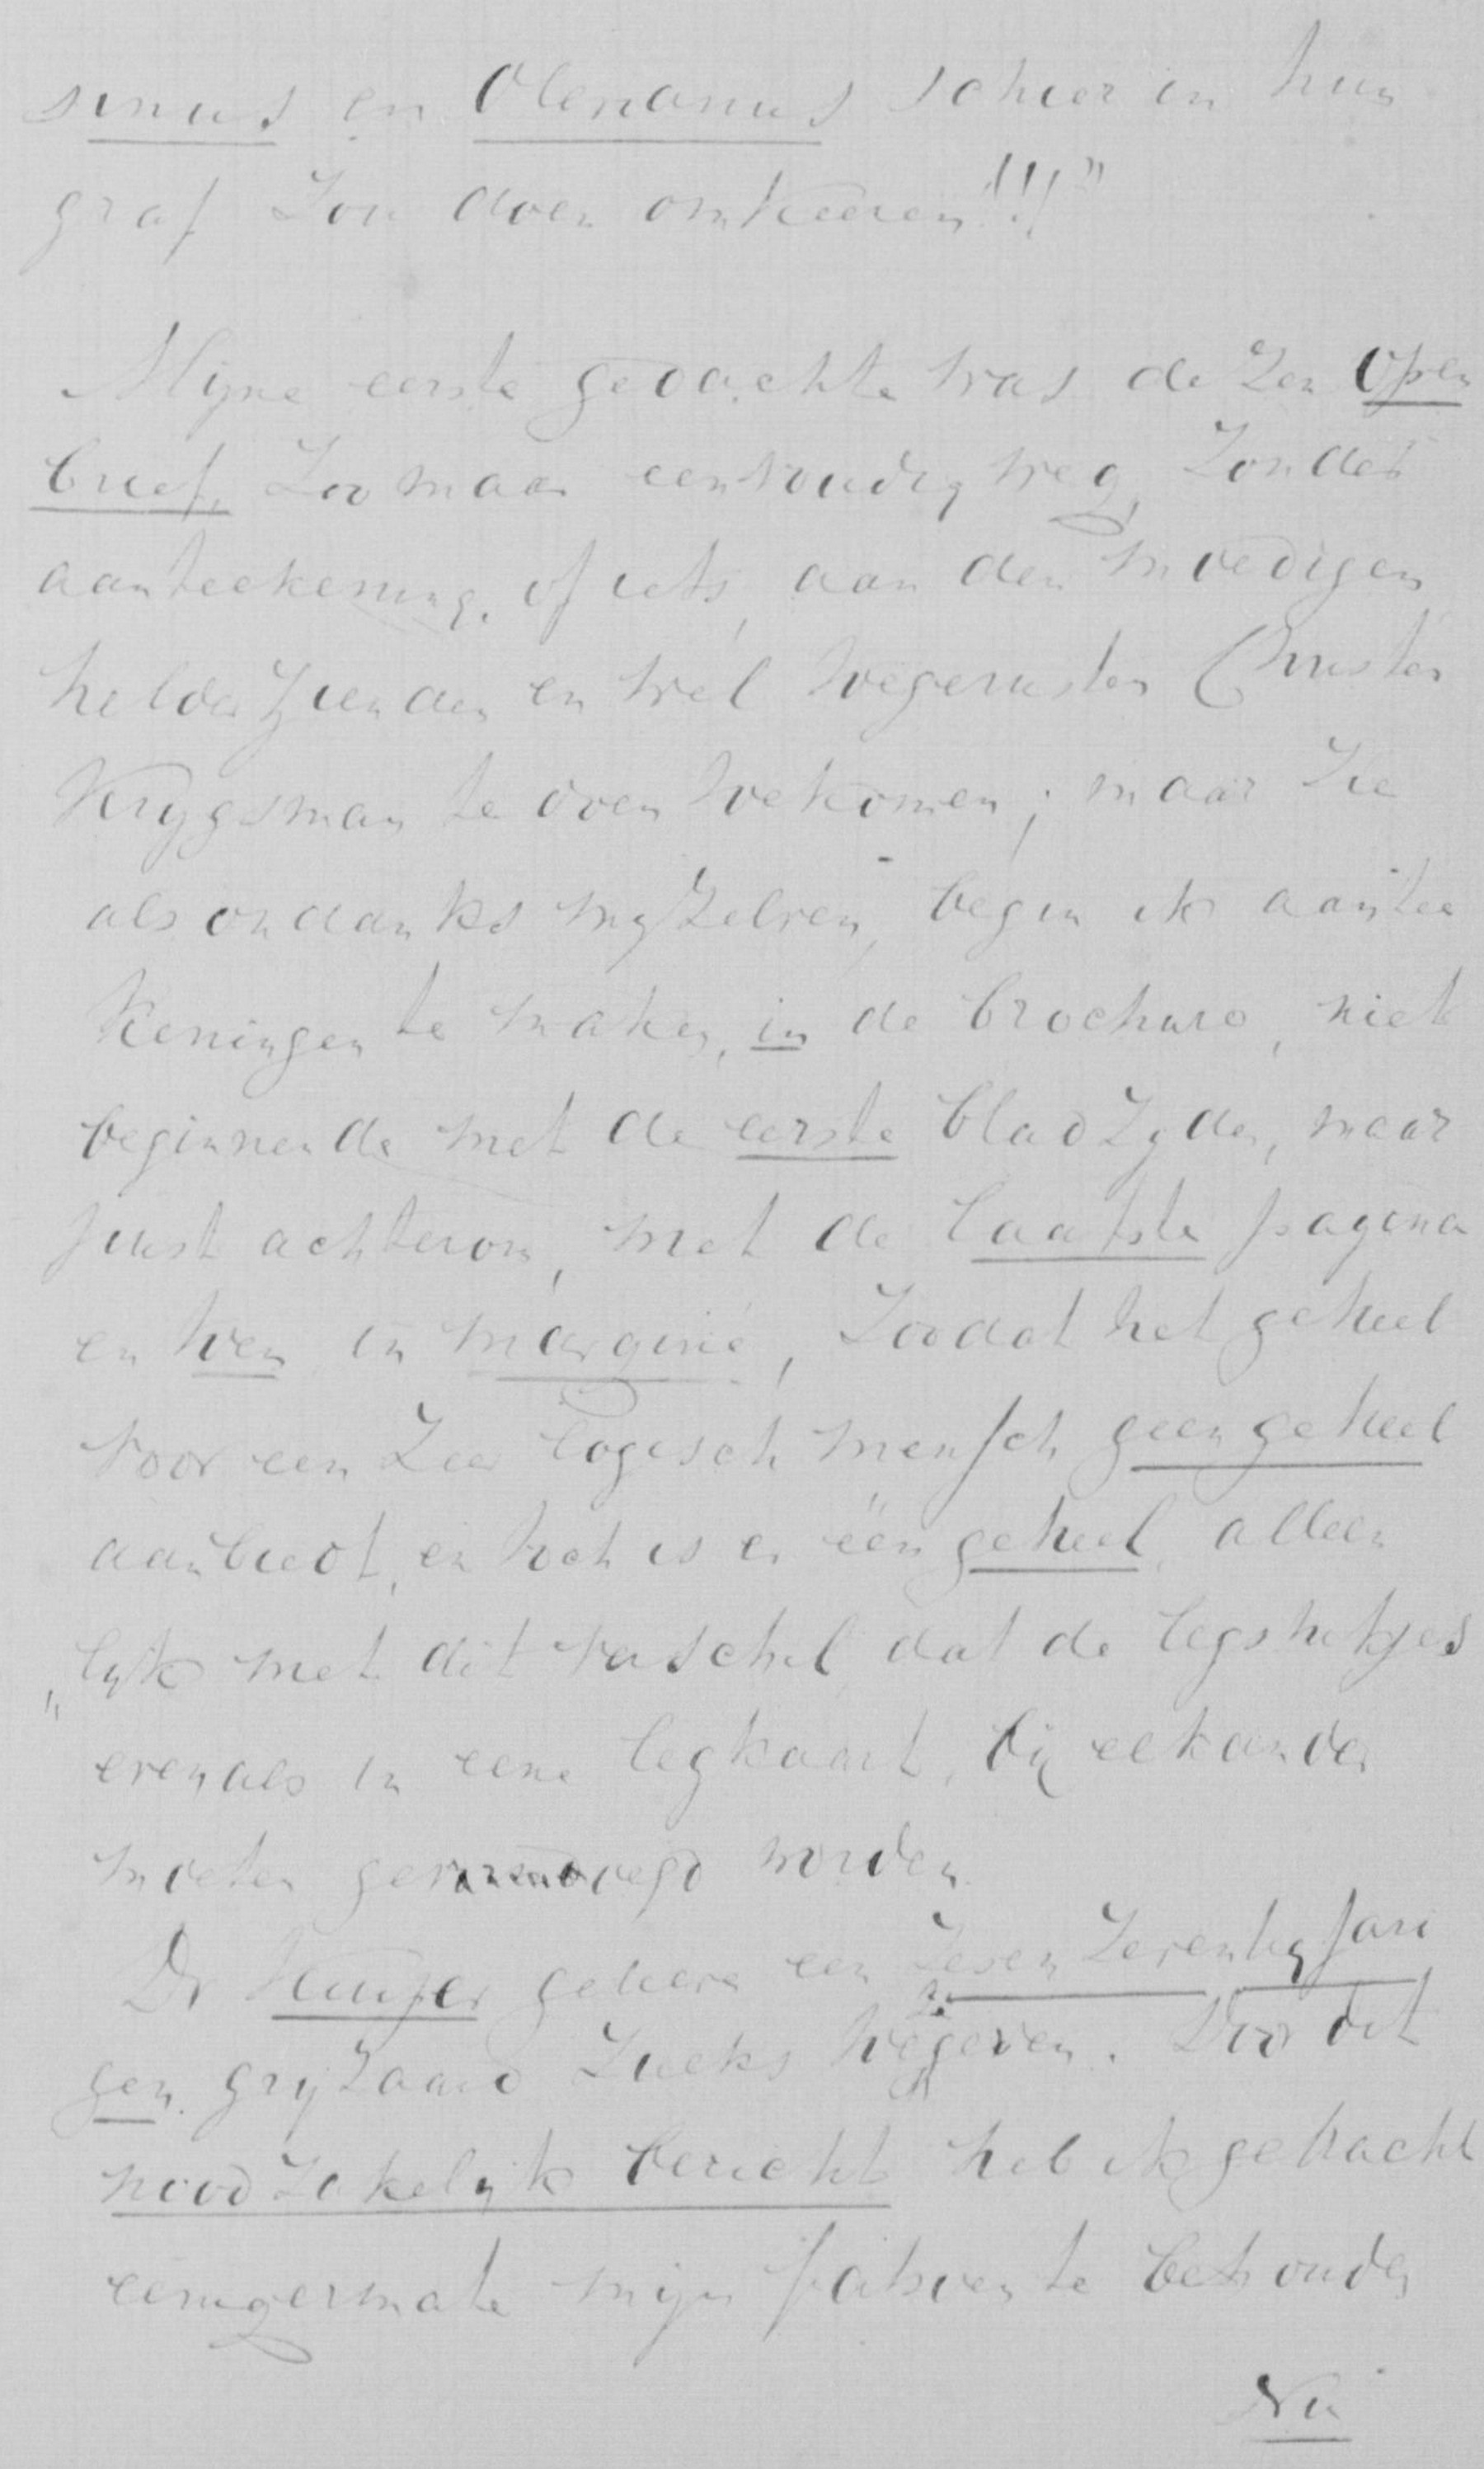 sinus en Olevianus schier in hun
graf zou doen omkeeren!!!"
Mijne eerste gedachte was dezen Open
brief, zoo maar eenvoudig weg, zonder
aanteekening, of iets, aan den moedigen
helderzienden en wel toegerusten Christen
Krijgsman te doen toekomen; maar zie
als ondanks mijzelven, begin ik aantee
keningen te maken, in de brochure, niet
beginnende met de eerste bladzyde, maar
juist achterom, met de laatste pagina
en wen in margine, zoodat het geheel
voor een zeer logisch mensch geen geheel
aanbiedt, en toch is er één geheel, alleen
"lyk met dit verschil dat de legstukjes
evenals in eene legkaart, bij elkander
moeten gevoegd worden
Dr Kuyper gelieve een zesenzeventig jari
gen grijzaard zulks toe te geven. Door dit
noodzakelijk bericht heb ik getracht
eenigermate mijn fatsoen te behouden
Nu